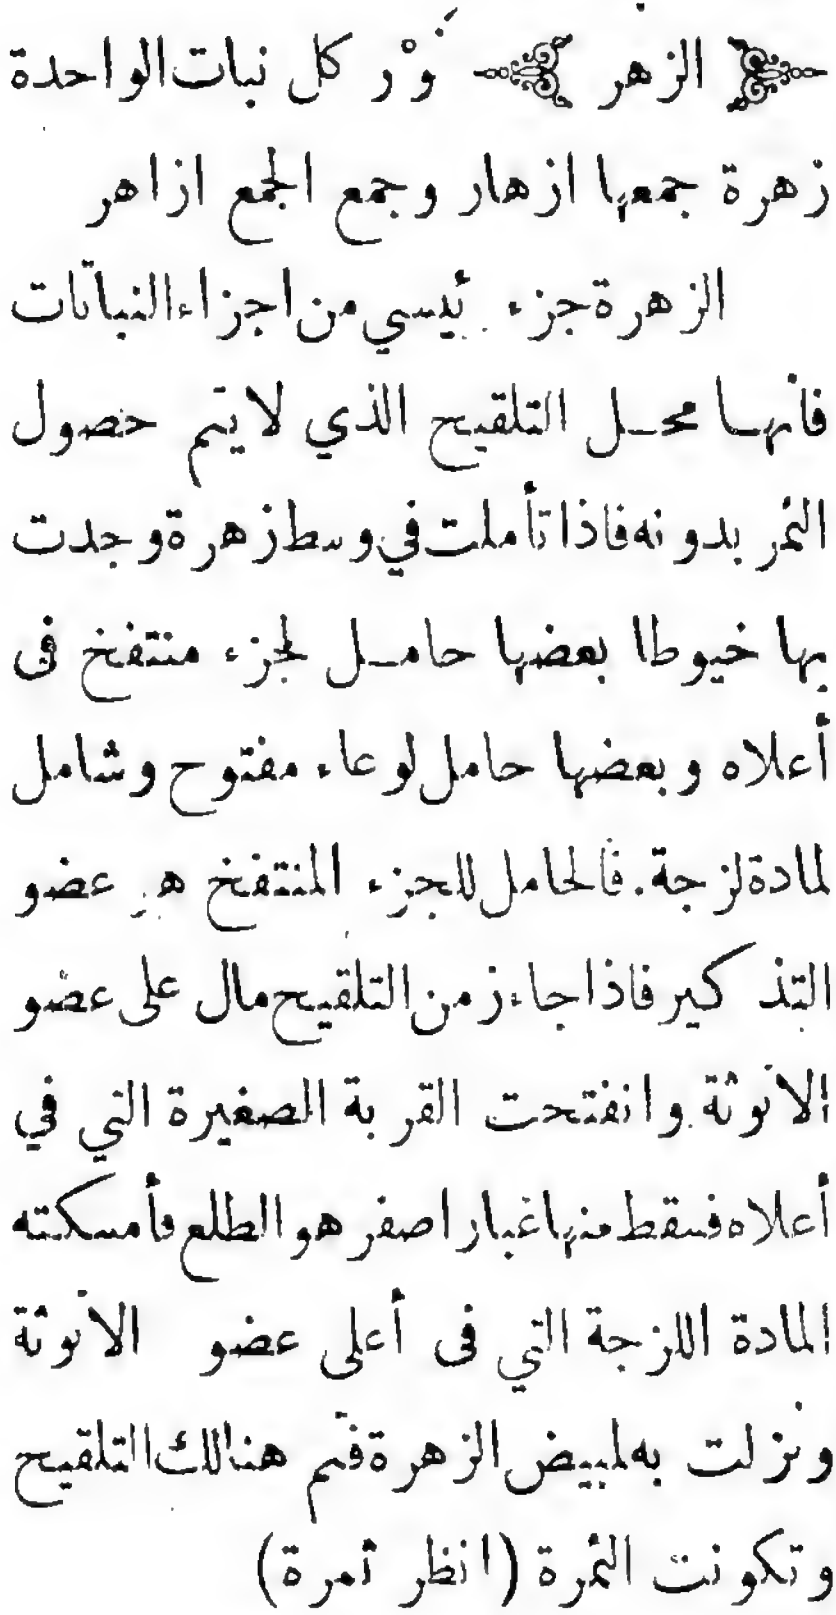 ﴿ الزهر ﴾ نَوْر كل نبات الواحدة
زهرة جمعها ازهار وجمع الجمع ازاهر
الزهرة جزء رئيسي من اجزاء النباتات
فأنهـا محـل التلقيح الذي لا يتم حصول
الثمر بدونه فاذا تأملت في وسط زهرة وجدت
بها خيوطا بعضها حامـل لجزء منتفخ فى
أعلاه وبعضها حامل لوعاء مفتوح وشامل
لمادة لزجة. فالحامل للجزء المنتفخ هو عضو
التذكير فاذا جاء زمن التلقيح مال على عضو
الأنوثة وانفتحت القربة الصغيرة التي في
أعلاه فسقط منها غبار اصفر هو الطلع فأمسكته
المادة اللزجة التي فى أعلى عضو الأنوثة
ونزلت به لمبيض الزهرة فتم هنالك التلقيح
وتكونت الثمرة (انظر ثمرة)